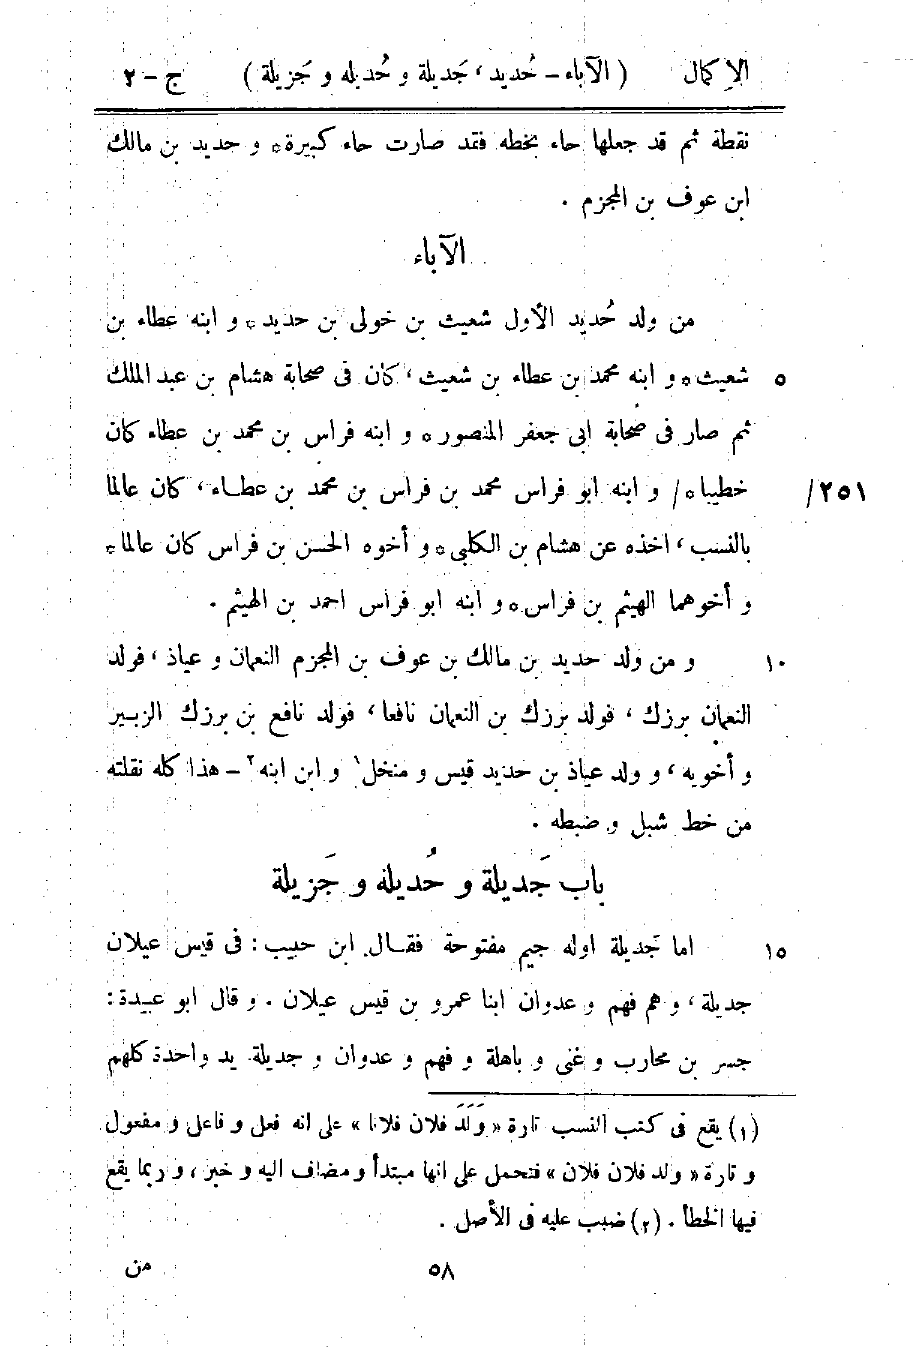 الإكمال ( الآباء – حُديد ، جَديلة و حُديله و جَزيلة ) ج – ٢
نقطة ثم قد جعلها حاء بخطه فقد صارت حاء كبيرة ه و حديد بن مالك
ابن عوف بن المجزم .
الآباء
من ولد حُديد الأول شعيث بن خولى بن حديد ه و ابنه عطاء بن
شعيث ه و ابنه محمد بن عطاء بن شعيث ، كان فى صحابة هشام بن عبد الملك ٥
ثم صار فى صحابة ابى جعفر المنصور ه و ابنه فراس بن محمد بن عطاء كان
خطيبا ه / و ابنه ابو فراس محمد بن فراس بن محمد بن عطـاء ، كان عالما ٢٥١/
بالنسب ، اخذه عن هشام بن الكلبى ه و أخوه الحسن بن فراس كان عالما ه
و أخوهما الهيثم بن فراس ه و ابنه ابو فراس احمد بن الهيثم .
و من ولد حديد بن مالك بن عوف بن المجزم النعمان و عياذ ، فولد ١٠
النعمان برزك ، فولد برزك بن النعمان نافعا ، فولد نافع بن برزك الزبير
و أخويه ، و ولد عياذ بن حديد قيس و منخل ١ و ابن ابنه ٢ – هذا كله نقلته
من خط شبل و ضبطه .
باب جَديلة و حُديلة و جَزيلة
اما جَديلة اوله جيم مفتوحة فقـال ابن حبيب : فى قيس عيلان ١٥
جديلة ، و هم فهم و عدوان ابنا عمرو بن قيس عيلان . و قال ابو عبيدة :
جسر بن محارب و غنى و باهلة و فهم و عدوان و جديلة يد واحدة كلهم
(١) يقع فى كتب النسب تارة « وَلَدَ فلان فلانا » على انه فعل و فاعل و مفعول
و تارة « ولد فلان فلان » فتحمل على انها مبتدأ و مضاف اليه و خبر ، و ربما يقع
فيها الخطأ . (٢) ضبب عليه فى الأصل .
٥٨ من